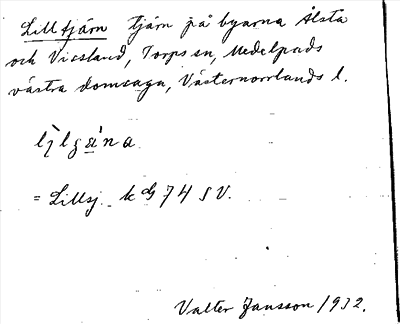 Lilltjärn tjärn på byarna Ålsta
och Viesland, Torps sn, Medelpads
västra domsaga, Västernorrlands l.
= Lillsj. kbl 74 SV.
Valter Jansson 1932.